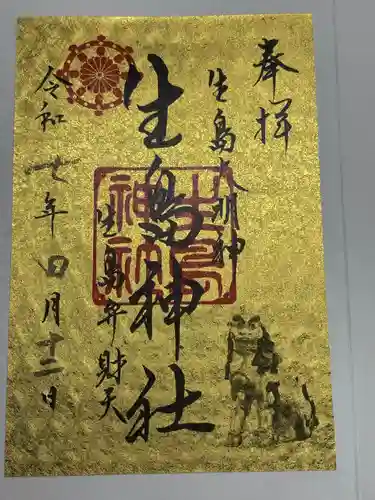 奉拝
生島大明神
生島神社
生島弁財天
令和七年四月十二日
生島神社